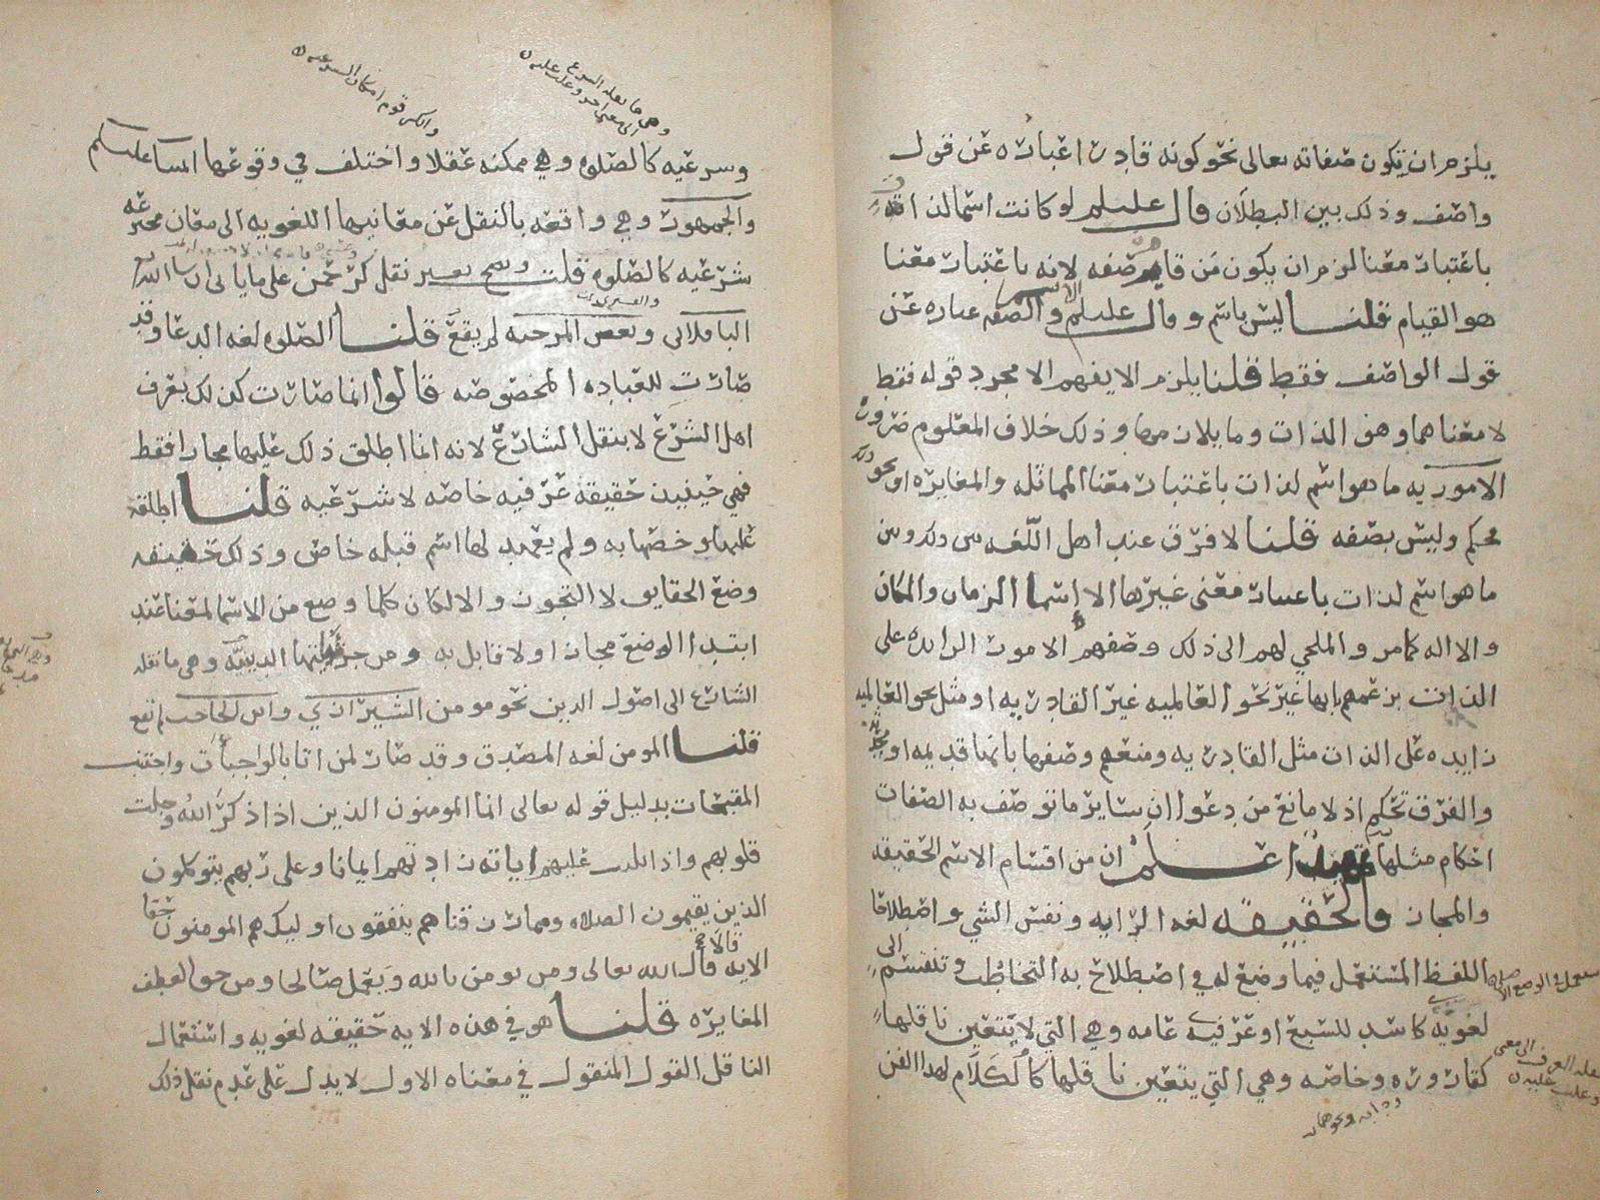 يلزم ان يكون صفاته تعالى نحو كونه قادرا عبارة عن قول
واصف وذلك بين البطلان قال عليلم لو كانت اسما لذات
باعتبار معنا لزم ان يكون من قام صفه لانه باعتبار معنا
هو القيام قلنا ليس باسم و قال عليلم والصفه عباره عن
قول الواصف فقط قلنا يلزم الا يفهم الا مجرد قوله فقط
لا معناهما وهو الذات وما يلازمها وذلك خلاف المعلوم ضروره
الامورية ما هو اسم لذات باعتبار معنا المماثله والمغايره او نحو ذلك
تحكم وليس بصفه قلنا لا فرق عند اهل اللغه بين ذلك وبين
ما هو اسم لذات باعتبار معنى غيرها الا اسما الزمان والمكان
والاله كما مر والملجي لهم الى ذلك وصفهم الامور الزايده على
الذات بزعمهم بانها غير نحو العالميه غير القادريه او مثل نحو العالميه
زايده على الذات مثل القادريه ومنعهم وصفها بانها قديمه او محدثه
والفرق تحكم اذ لا مانع من دعوا ان ساير ما توصف به الصفات
احكام مثلها اعلم ان من اقسام الاسم الحقيقه
والمجاز والحقيقه لغه الرايه ونفس الشي واصطلاحا
اللفظ المستعمل فيما وضع له في اصطلاح به التخاطب وتنقسم الى
لغويه كاسد للسبع او عرفيه عامه وهي التي لا يتعين ناقلها
كقاروره وخاصه وهي التي يتعين ناقلها كالكلام لهذا الفن
وهي ما نقله الشرع
الى معنى اخر وغلب عليه
وانكر قوم امكان الشرعيه
وشرعيه كالصلوه وهي ممكنه عقلا واختلف في وقوعها ائمتنا عليلم
والجمهور وهي واقعه بالنقل عن معانيها اللغويه الى معان مخترعه
شرعيه كالصلوه قلت وصح بغير نقل كرحمن على ما ياتي ان شا الله
الباقلاني وبعض المرجيه لم يقع قلنا الصلوه لغه الدعا وقد
صارت للعباده المخصوصه قالوا انما صارت كذلك بعرف
اهل الشرع لا بنقل الشارع لانه انما اطلق ذلك عليها مجازا فقط
فهي حينيذ حقيقه عرفيه خاصه لا شرعيه قلنا اطلقه
عليها وخصها به ولم يعهد لها اسم قبله خاص وذلك حقيقه
وضع الحقايق لا التجوز والا لكان كلما وضع من الاسما لمعنا عند
ابتدا الوضع مجازا ولا قايل به ومن جزئياتها الدينيه وهي ما نقله
الشارع الى اصول الدين نحو مومن الشيرازي وابن الحاجب لم تقع
قلنا المومن لغه المصدق وقد صار لمن اتا بالواجبات واجتنب
المقبحات بدليل قوله تعالى انما المومنون الذين اذا ذكر الله وجلت
قلوبهم واذا تليت عليهم اياته زادتهم ايمانا وعلى ربهم يتوكلون
الذين يقيمون الصلاه ومما رزقناهم ينفقون اوليك هم المومنون حقا
الايه قالا قال الله تعالى ومن يومن بالله ويعمل صالحا ومن حق العطف
المغايره قلنا هو في هذه الايه حقيقه لغويه واستعمال
الناقل القول المنقول في معناه الاول لا يدل على عدم نقل ذلك